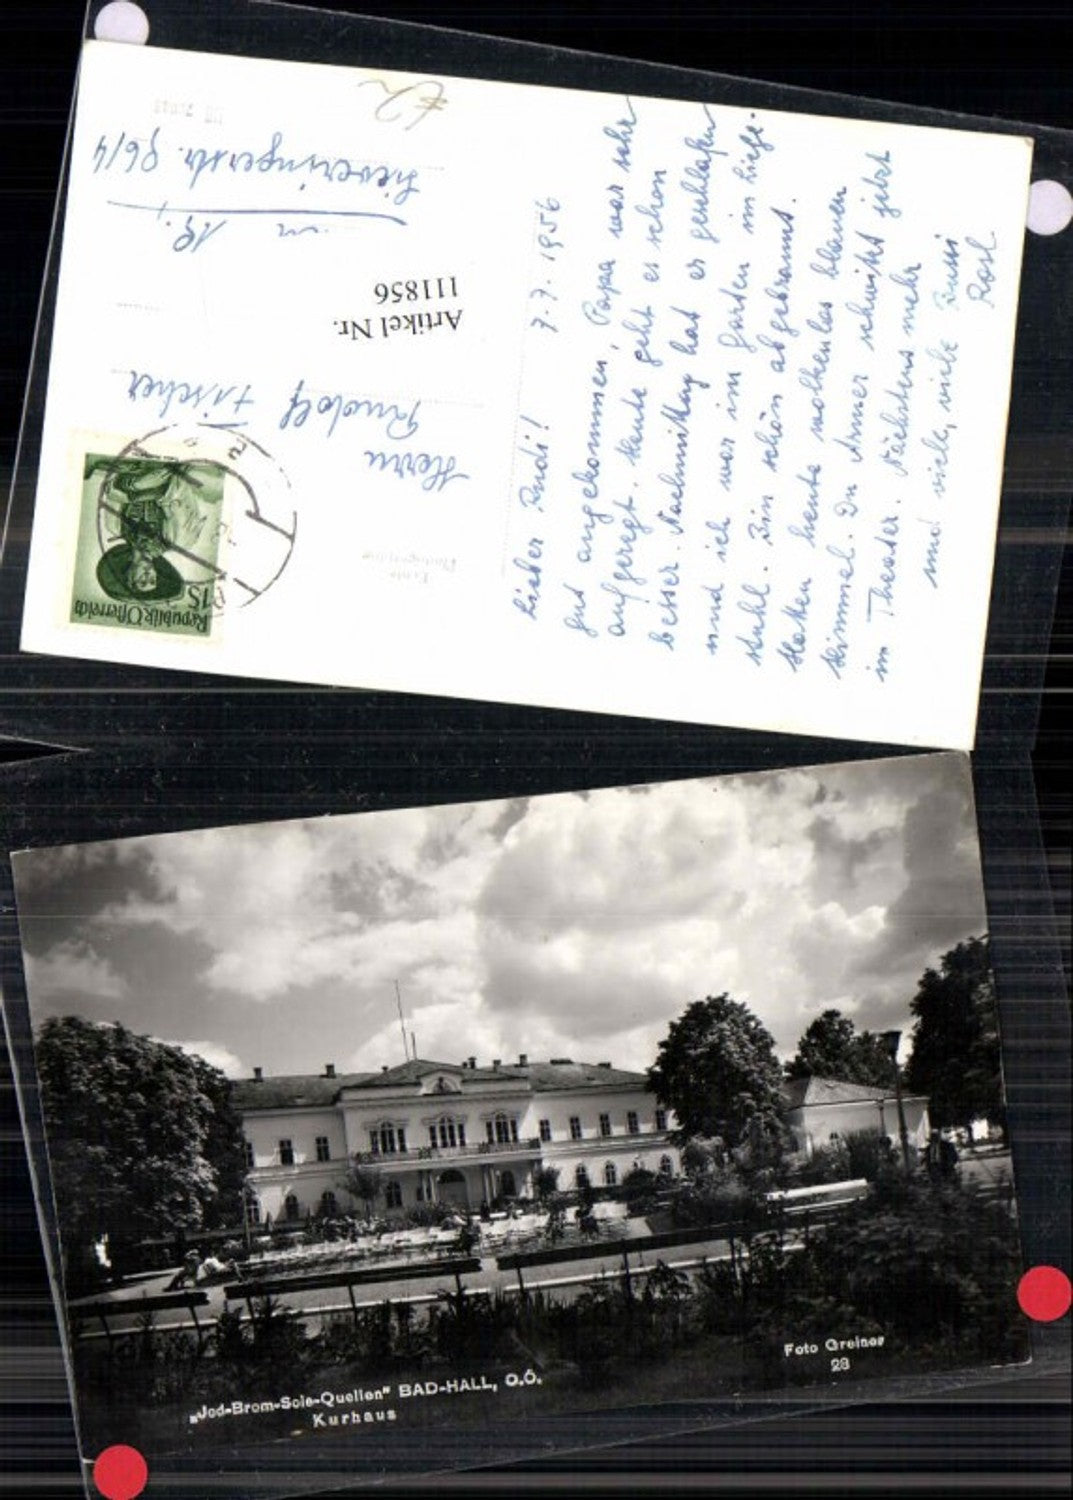 Lieber Rudi! 7.7.1956
gut angekommen, Papa war sehr
aufgeregt. Heute geht es schon
besser. Nachmittag hat er geschlafen
und ich war im Garten im Liege-
stuhl. Bin schön abgebrannt.
Hatten heute wolkenlos blauen
Himmel. Du Armer schwitzt jetzt
im Theater. Nächstens mehr
und viele, viele Bussi
Rosl
Republik Österreich
1S
Echte
Photographie
Herrn
Rudolf Fischer
Artikel Nr.
111856
in 19.,
Sieveringerstr. 96/4
„Jod-Brom-Sole-Quellen" BAD-HALL, O.Ö.
Kurhaus
Foto Greiner
28